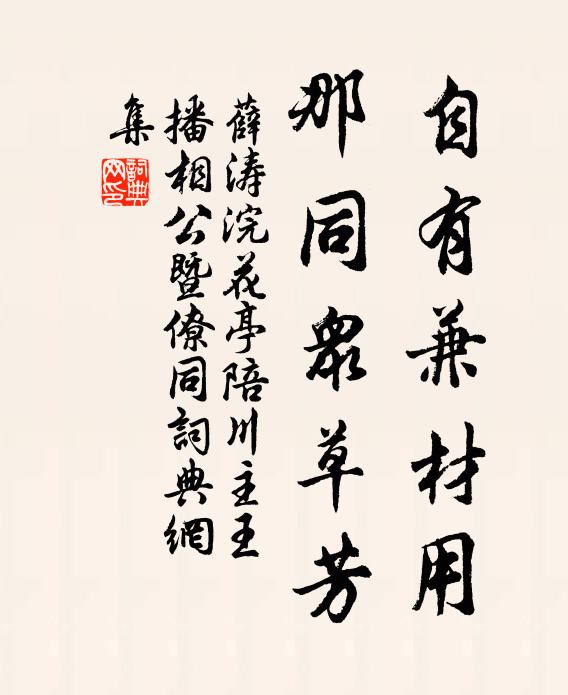 自有兼材用
那同眾草芳
薛濤浣花亭陪川主王
播相公暨僚同詞典網
集
詞典網印